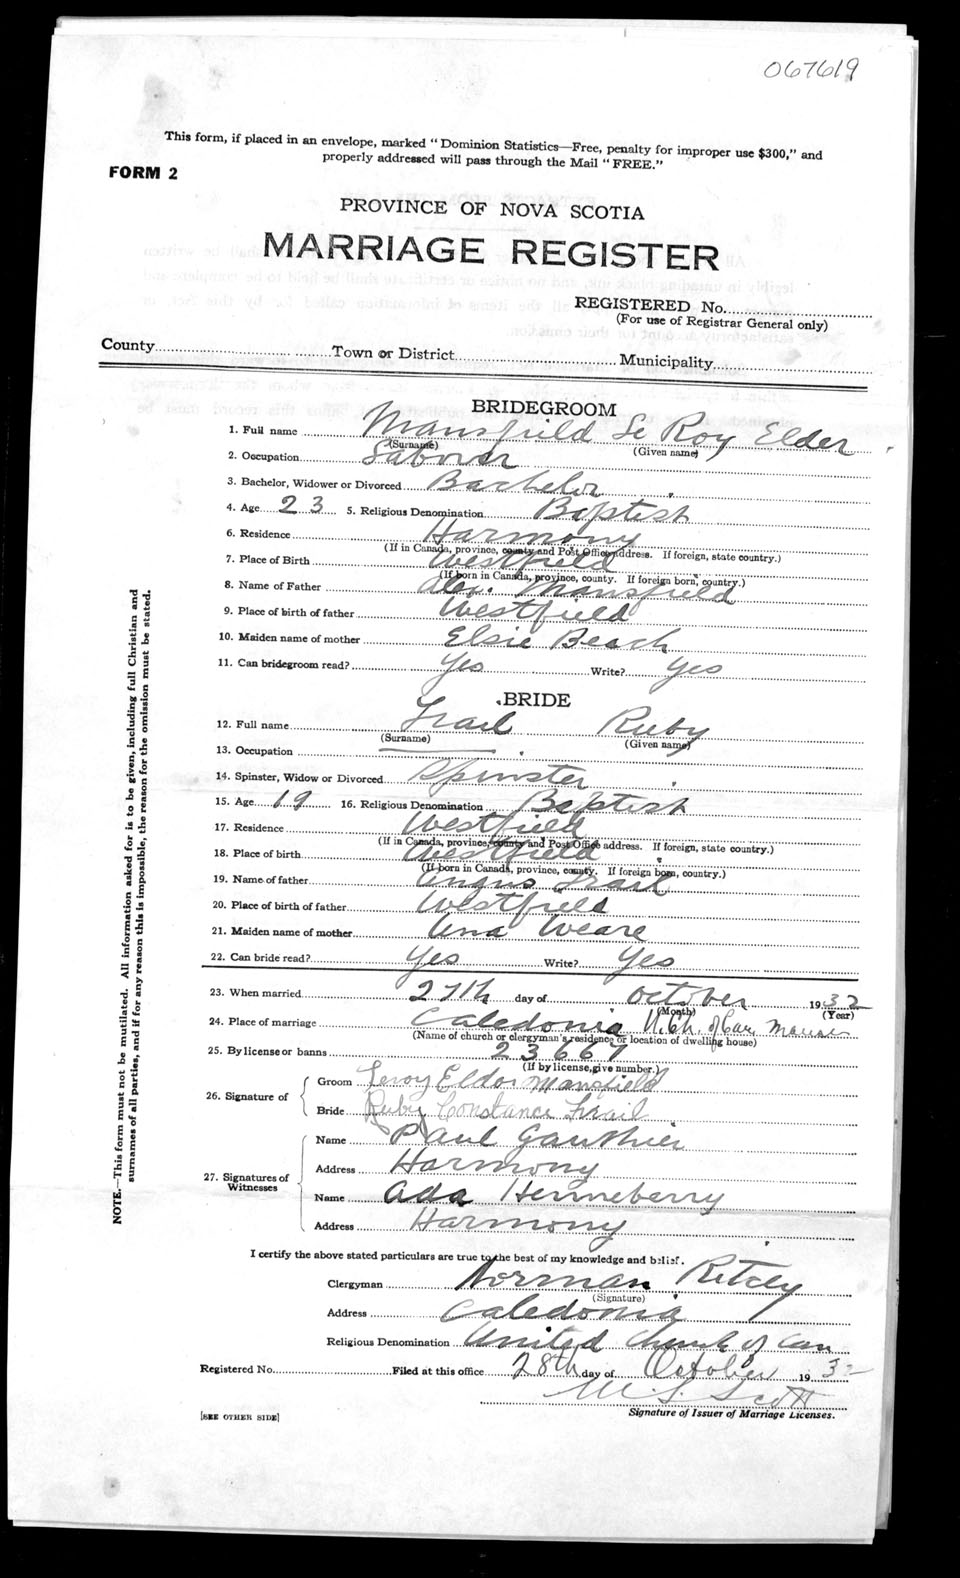 067619
This form, if placed in an envelope, marked "Dominion Statistics—Free, penalty for improper use $300," and
properly addressed will pass through the Mail "FREE."
FORM 2
PROVINCE OF NOVA SCOTIA
MARRIAGE REGISTER
REGISTERED No.
(For use of Registrar General only)
County Town or District Municipality
BRIDEGROOM
1. Full name Mansfield Le Roy Elder
(Surname) (Given name)
2. Occupation Laborer
3. Bachelor, Widower or Divorced Bachelor
4. Age 23 5. Religious Denomination Baptist
6. Residence Harmony
(If in Canada, province, county and Post Office address. If foreign, state country.)
7. Place of Birth Westfield
(If born in Canada, province, county. If foreign born, country.)
8. Name of Father Alex. Mansfield
9. Place of birth of father Westfield
10. Maiden name of mother Elsie Beach
11. Can bridegroom read? Yes Write? Yes
BRIDE
12. Full name Frail Ruby
(Surname) (Given name)
13. Occupation
14. Spinster, Widow or Divorced Spinster
15. Age 19 16. Religious Denomination Baptist
17. Residence Westfield
(If in Canada, province, county and Post Office address. If foreign, state country.)
18. Place of birth Westfield
(If born in Canada, province, county. If foreign born, country.)
19. Name of father Angus Frail
20. Place of birth of father Westfield
21. Maiden name of mother Una Weare
22. Can bride read? Yes Write? Yes
23. When married 27th day of October 1932
(Month) (Year)
24. Place of marriage Caledonia U. Ch. of Can. Manse
(Name of church or clergyman's residence or location of dwelling house)
25. By license or banns 23667
(If by license, give number.)
26. Signature of
Groom Leroy Eldor Mansfield
Bride Ruby Constance Frail
27. Signatures of Witnesses
Name Paul Gauthier
Address Harmony
Name Ada Henneberry
Address Harmony
I certify the above stated particulars are true to the best of my knowledge and belief.
Clergyman Norman Ritcey
(Signature)
Address Caledonia
Religious Denomination United Church of Can
Registered No. Filed at this office 28th day of October 1932
M. S. Scott
Signature of Issuer of Marriage Licenses.
[SEE OTHER SIDE]
NOTE.—This form must not be mutilated. All information asked for is to be given, including full Christian and
surnames of all parties, and if for any reason this is impossible, the reason for the omission must be stated.